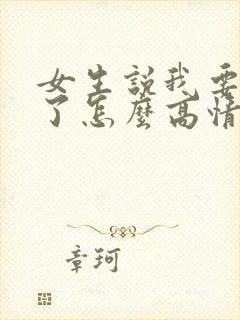 女生説我要
了怎麼高情
章珂